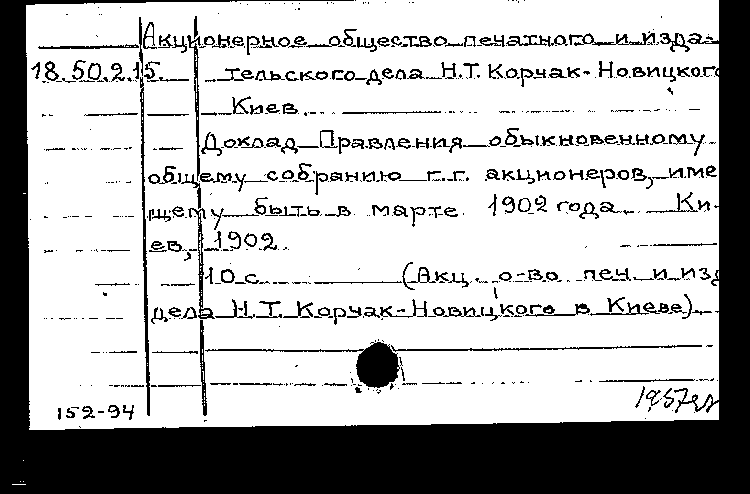 Акционерное общество печатного и изда-
18.50.2.15. тельского дела Н.Т. Корчак-Новицкого
Киев
Доклад Правления обыкновенному
общему собранию г.г. акционеров, име
щему быть в марте 1902 года. Ки-
ев, 1902.
10 с. (Акц. о-во печ. и изд
дела Н.Т. Корчак-Новицкого в Киеве).
152-94